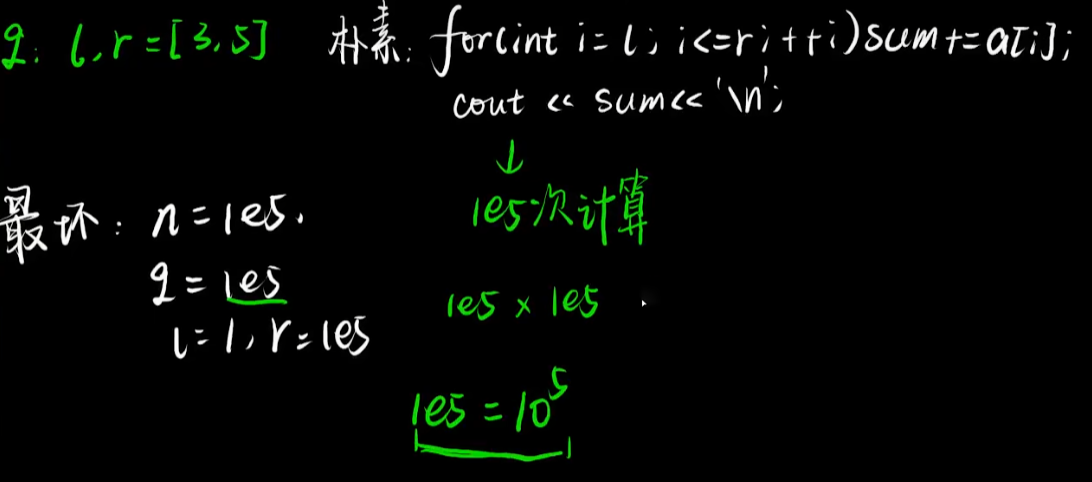 q: l,r=[3,5] 朴素: for(int i=l; i<=r; ++i)sum+=a[i];
cout << sum<< '\n';
↓
1e5次计算
最坏: n=1e5.
q=1e5
l=1, r=1e5
1e5 × 1e5
1e5=10^5